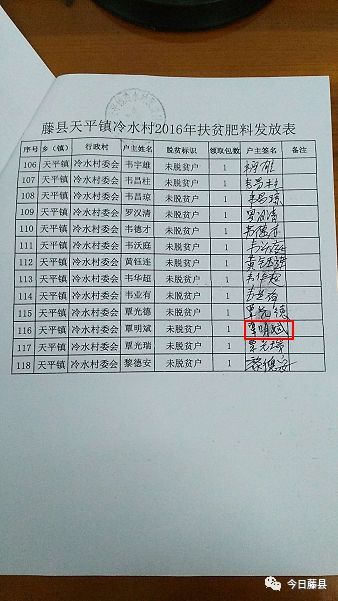 藤县天平镇冷水村2016年扶贫肥料发放表
序号 乡（镇） 行政村 户主姓名 脱贫标识 领取包数 户主签名 备注
106 天平镇 冷水村委会 韦宇雄 未脱贫户 1
107 天平镇 冷水村委会 韦昌柱 未脱贫户 1 韦昌柱
108 天平镇 冷水村委会 韦昌琼 未脱贫户 1 韦昌琼
109 天平镇 冷水村委会 罗汉清 未脱贫户 1 罗汉清
110 天平镇 冷水村委会 韦德才 未脱贫户 1 韦德才
111 天平镇 冷水村委会 韦沃庭 未脱贫户 1
112 天平镇 冷水村委会 黄钰连 未脱贫户 1 黄钰连
113 天平镇 冷水村委会 韦华超 未脱贫户 1 韦华超
114 天平镇 冷水村委会 韦业有 未脱贫户 1
115 天平镇 冷水村委会 覃光德 未脱贫户 1 覃光德
116 天平镇 冷水村委会 覃明斌 未脱贫户 1 覃明斌
117 天平镇 冷水村委会 覃光瑞 未脱贫户 1 覃光瑞
118 天平镇 冷水村委会 黎德安 未脱贫户 1 黎德安
今日藤县